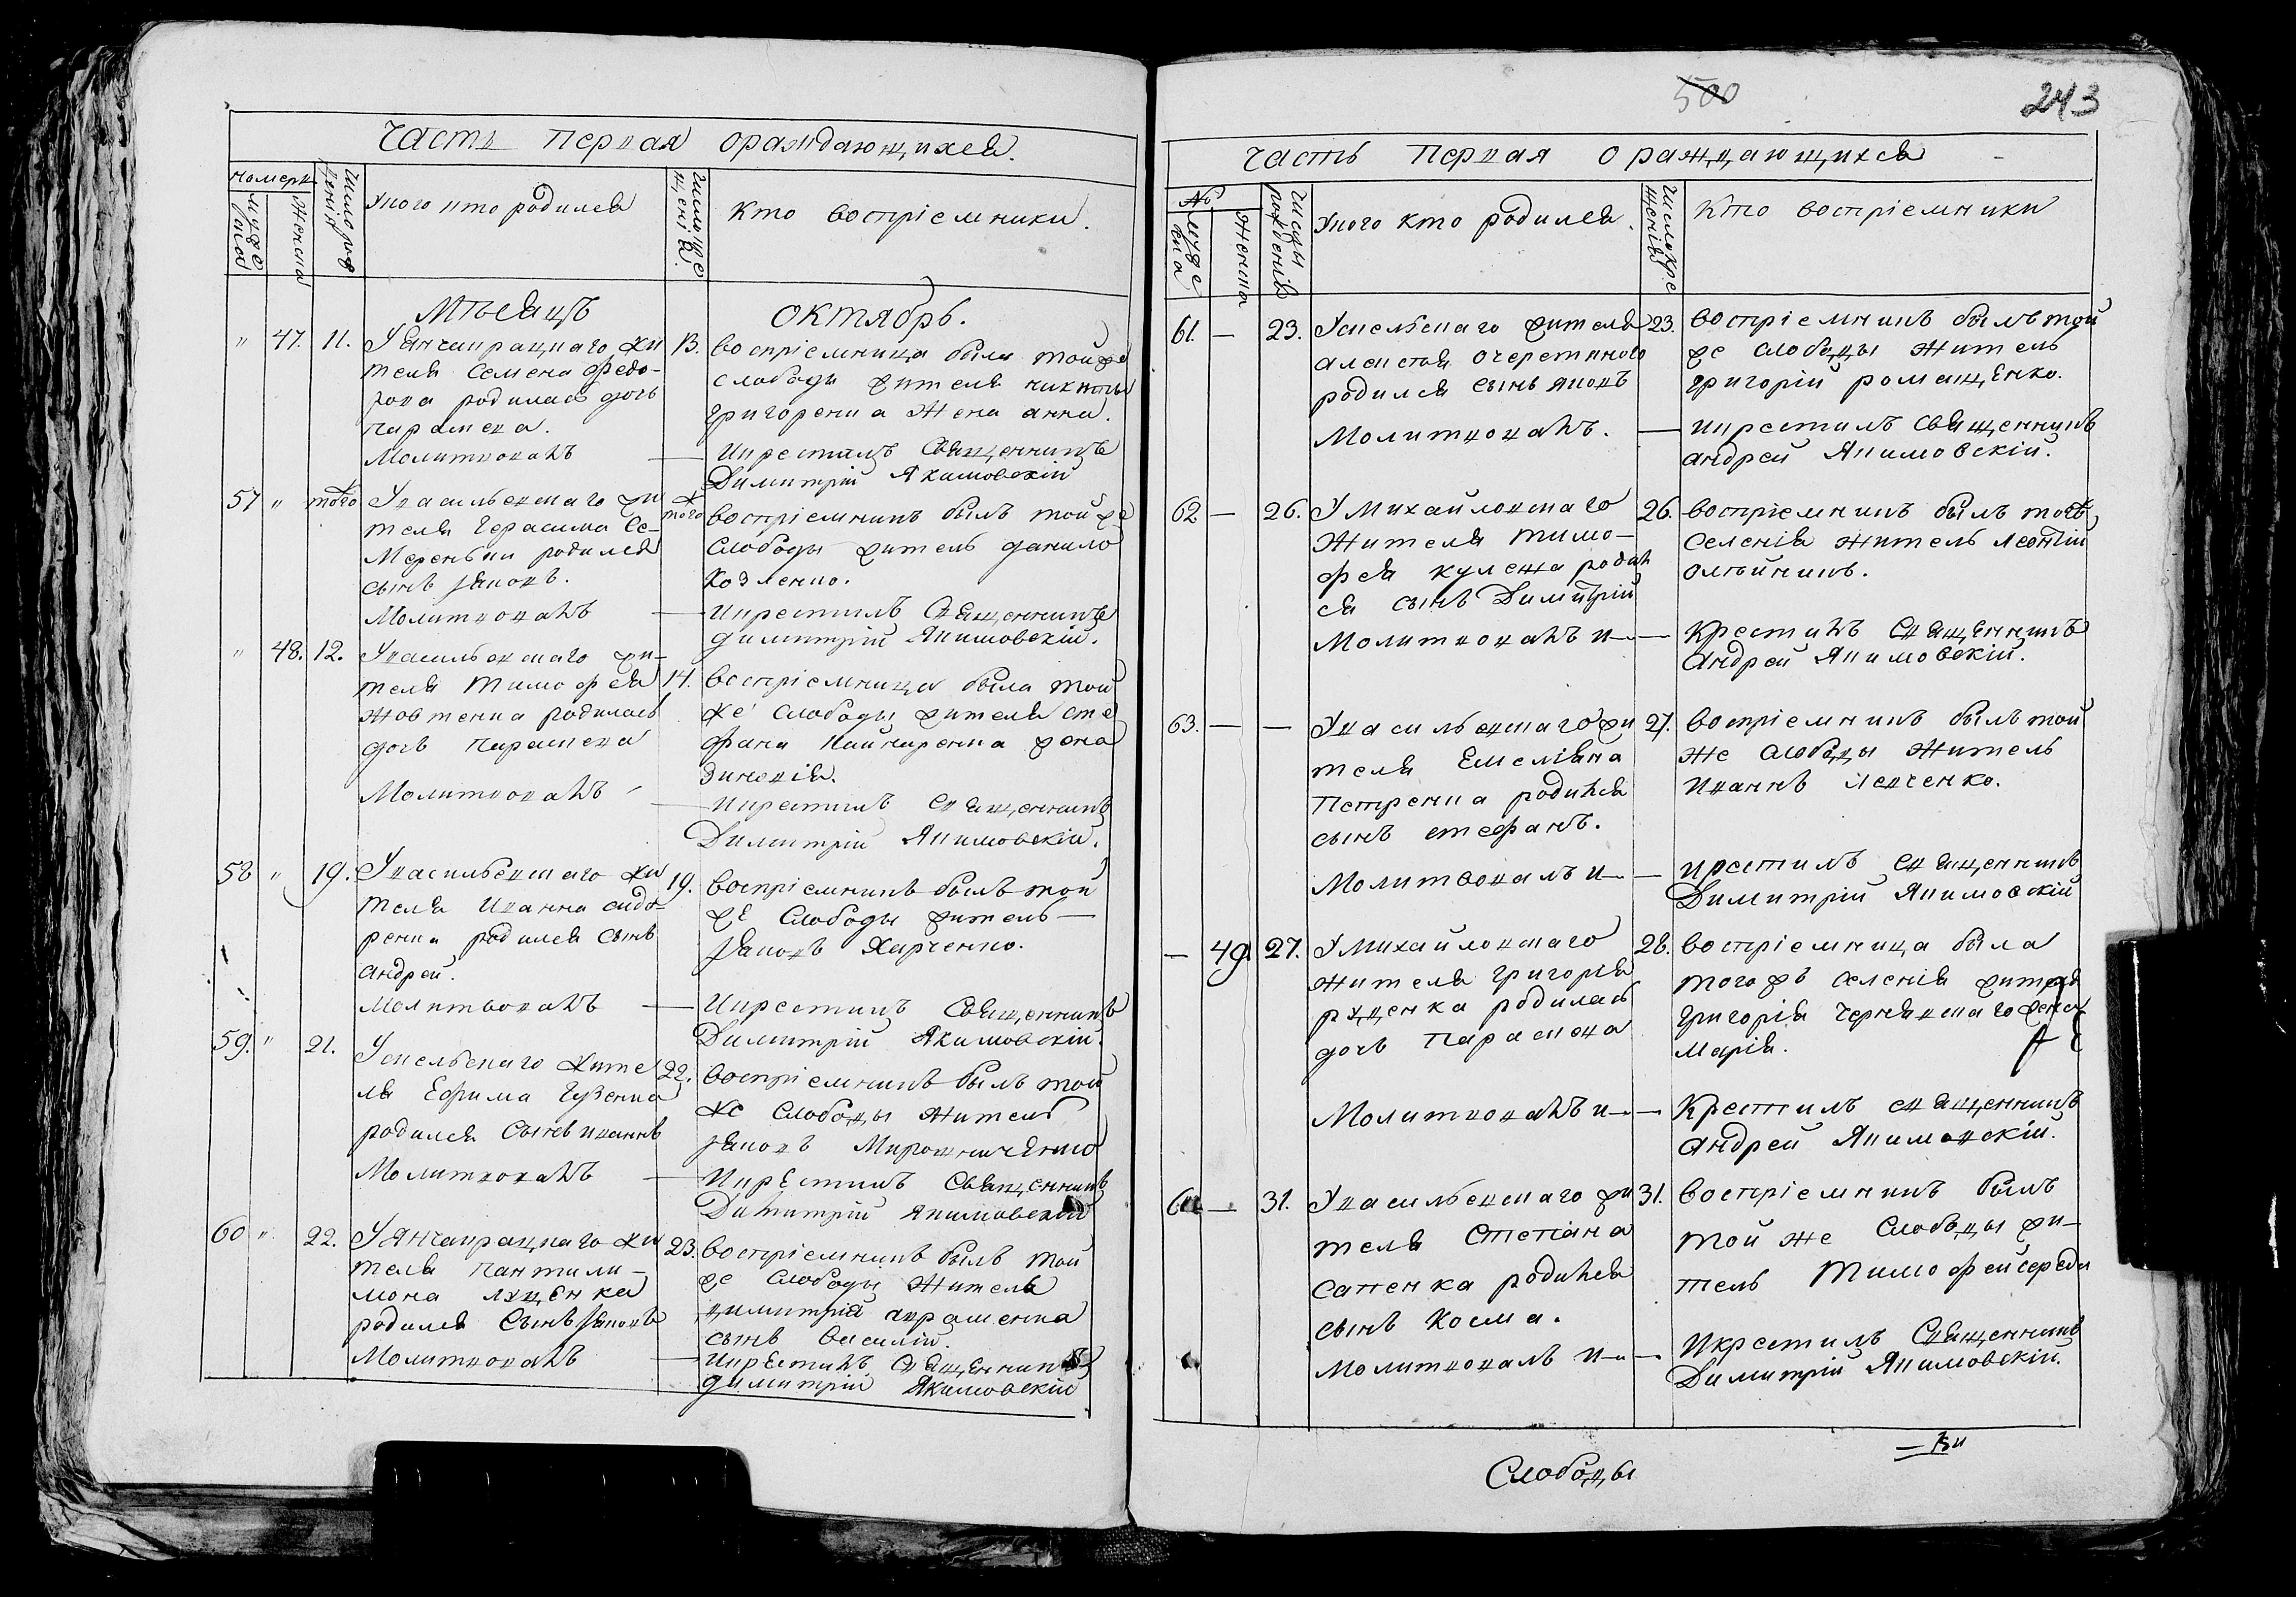 Часть Первая ораждающихся.
номера
муже
ска
Женска
Число рож
денія
Укого кто родился
Число кре
щенія
Кто воспріемники.
Мѣсяцъ Октябрь.
" 47. 11. У Янчаирацкаго жи
теля Семена Федо-
рова родилась дочь
параскева.
Молитвовалъ
13. воспріемница была той же
слободы жителя никиты
григоренка Жена анна.
Икрестилъ Священникъ
Димитрій Якимовскій
57 " того Увасильевскаго жи
теля Герасима Се-
Мереньки родился
сынъ Іяковъ.
Молитвовалъ
того воспріемникъ былъ той же
Слободы житель данило
Козленко.
Икрестилъ Священникъ
димитрій Якимовскій.
" 48. 12. Увасильевскаго жи-
теля Тимофея
Жовтенка родилась
дочь параскева
Молитвовалъ
14. воспріемница была той
же слободы жителя сте
фана Кайнаренка жена
Зиновія.
Икрестилъ Священникъ
Димитрій Якимовскій.
58 " 19. Увасильевскаго жи
теля Иванна сидо-
ренка родился сынъ
андрей.
Молитвовалъ
19. воспріемникъ былъ той
же Слободы житель
Іяковъ Харченко.
Икрестилъ Священникъ
Димитрій Якимовскій.
59. " 21. Ускельскаго жите
ля Ефима Гузенка
родился Сынъ иваннъ
Молитвовалъ
22. воспріемникъ былъ той
же Слободы житель
Іяковъ Мирошниченко
Икрестилъ Священникъ
Димитрій Якимовскій
60 " 22. У Янчаирацкаго жи
теля пантили-
мона луценка
родился Сынъ Іяковъ
Молитвовалъ
23. воспріемникъ былъ той
же Слободы житель
димитрія авраменка
сынъ василій.
Икрестилъ Священникъ
димитрій Якимовскій
500
243
Часть Первая ораждающихся
№
муже
ска
Женска
Числы
рожденія
Укого кто родился.
Число кре
щенія
Кто воспріемники
61. — 23. Ускельскаго жителя
алексея очеретяного
родился сынъ яковъ
Молитвовалъ.
23. воспріемникъ былъ той
же слободы житель
григорій романенко.
икрестилъ Священникъ
андрей Якимовскій.
62 — 26. У Михайловскаго
Жителя Тимо-
фея кулежа родил
ся сынъ Димитрій
Молитвовалъ и
26. воспріемникъ былъ тогоъ
селенія житель леонтій
олѣйникъ.
Крестилъ Священникъ
Андрей Якимовскій.
63. — — Увасильевскаго жи
теля Емеліяна
петренка родился
сынъ стефанъ.
Молитвовалъ и
27. воспріемникъ былъ той
же слободы житель
Иваннъ левченко.
крестилъ Священникъ
Димитрій Якимовскій
— 49. 27. У Михайловскаго
жителя григорія
руденка родилась
дочь параскева
Молитвовалъ и
28. воспріемница была
тогожъ селенія жителя
григорія чернявскаго жена
Марія.
Крестилъ священникъ
Андрей Якимовскій.
64 — 31. Увасильевскаго жи
теля Степана
сапенка родился
сынъ Косма.
Молитвовалъ и
31. воспріемникъ былъ
той же Слободы жи-
тель Тимофей середа
Икрестилъ Священникъ
Димитрій Якимовскій.
Слободы